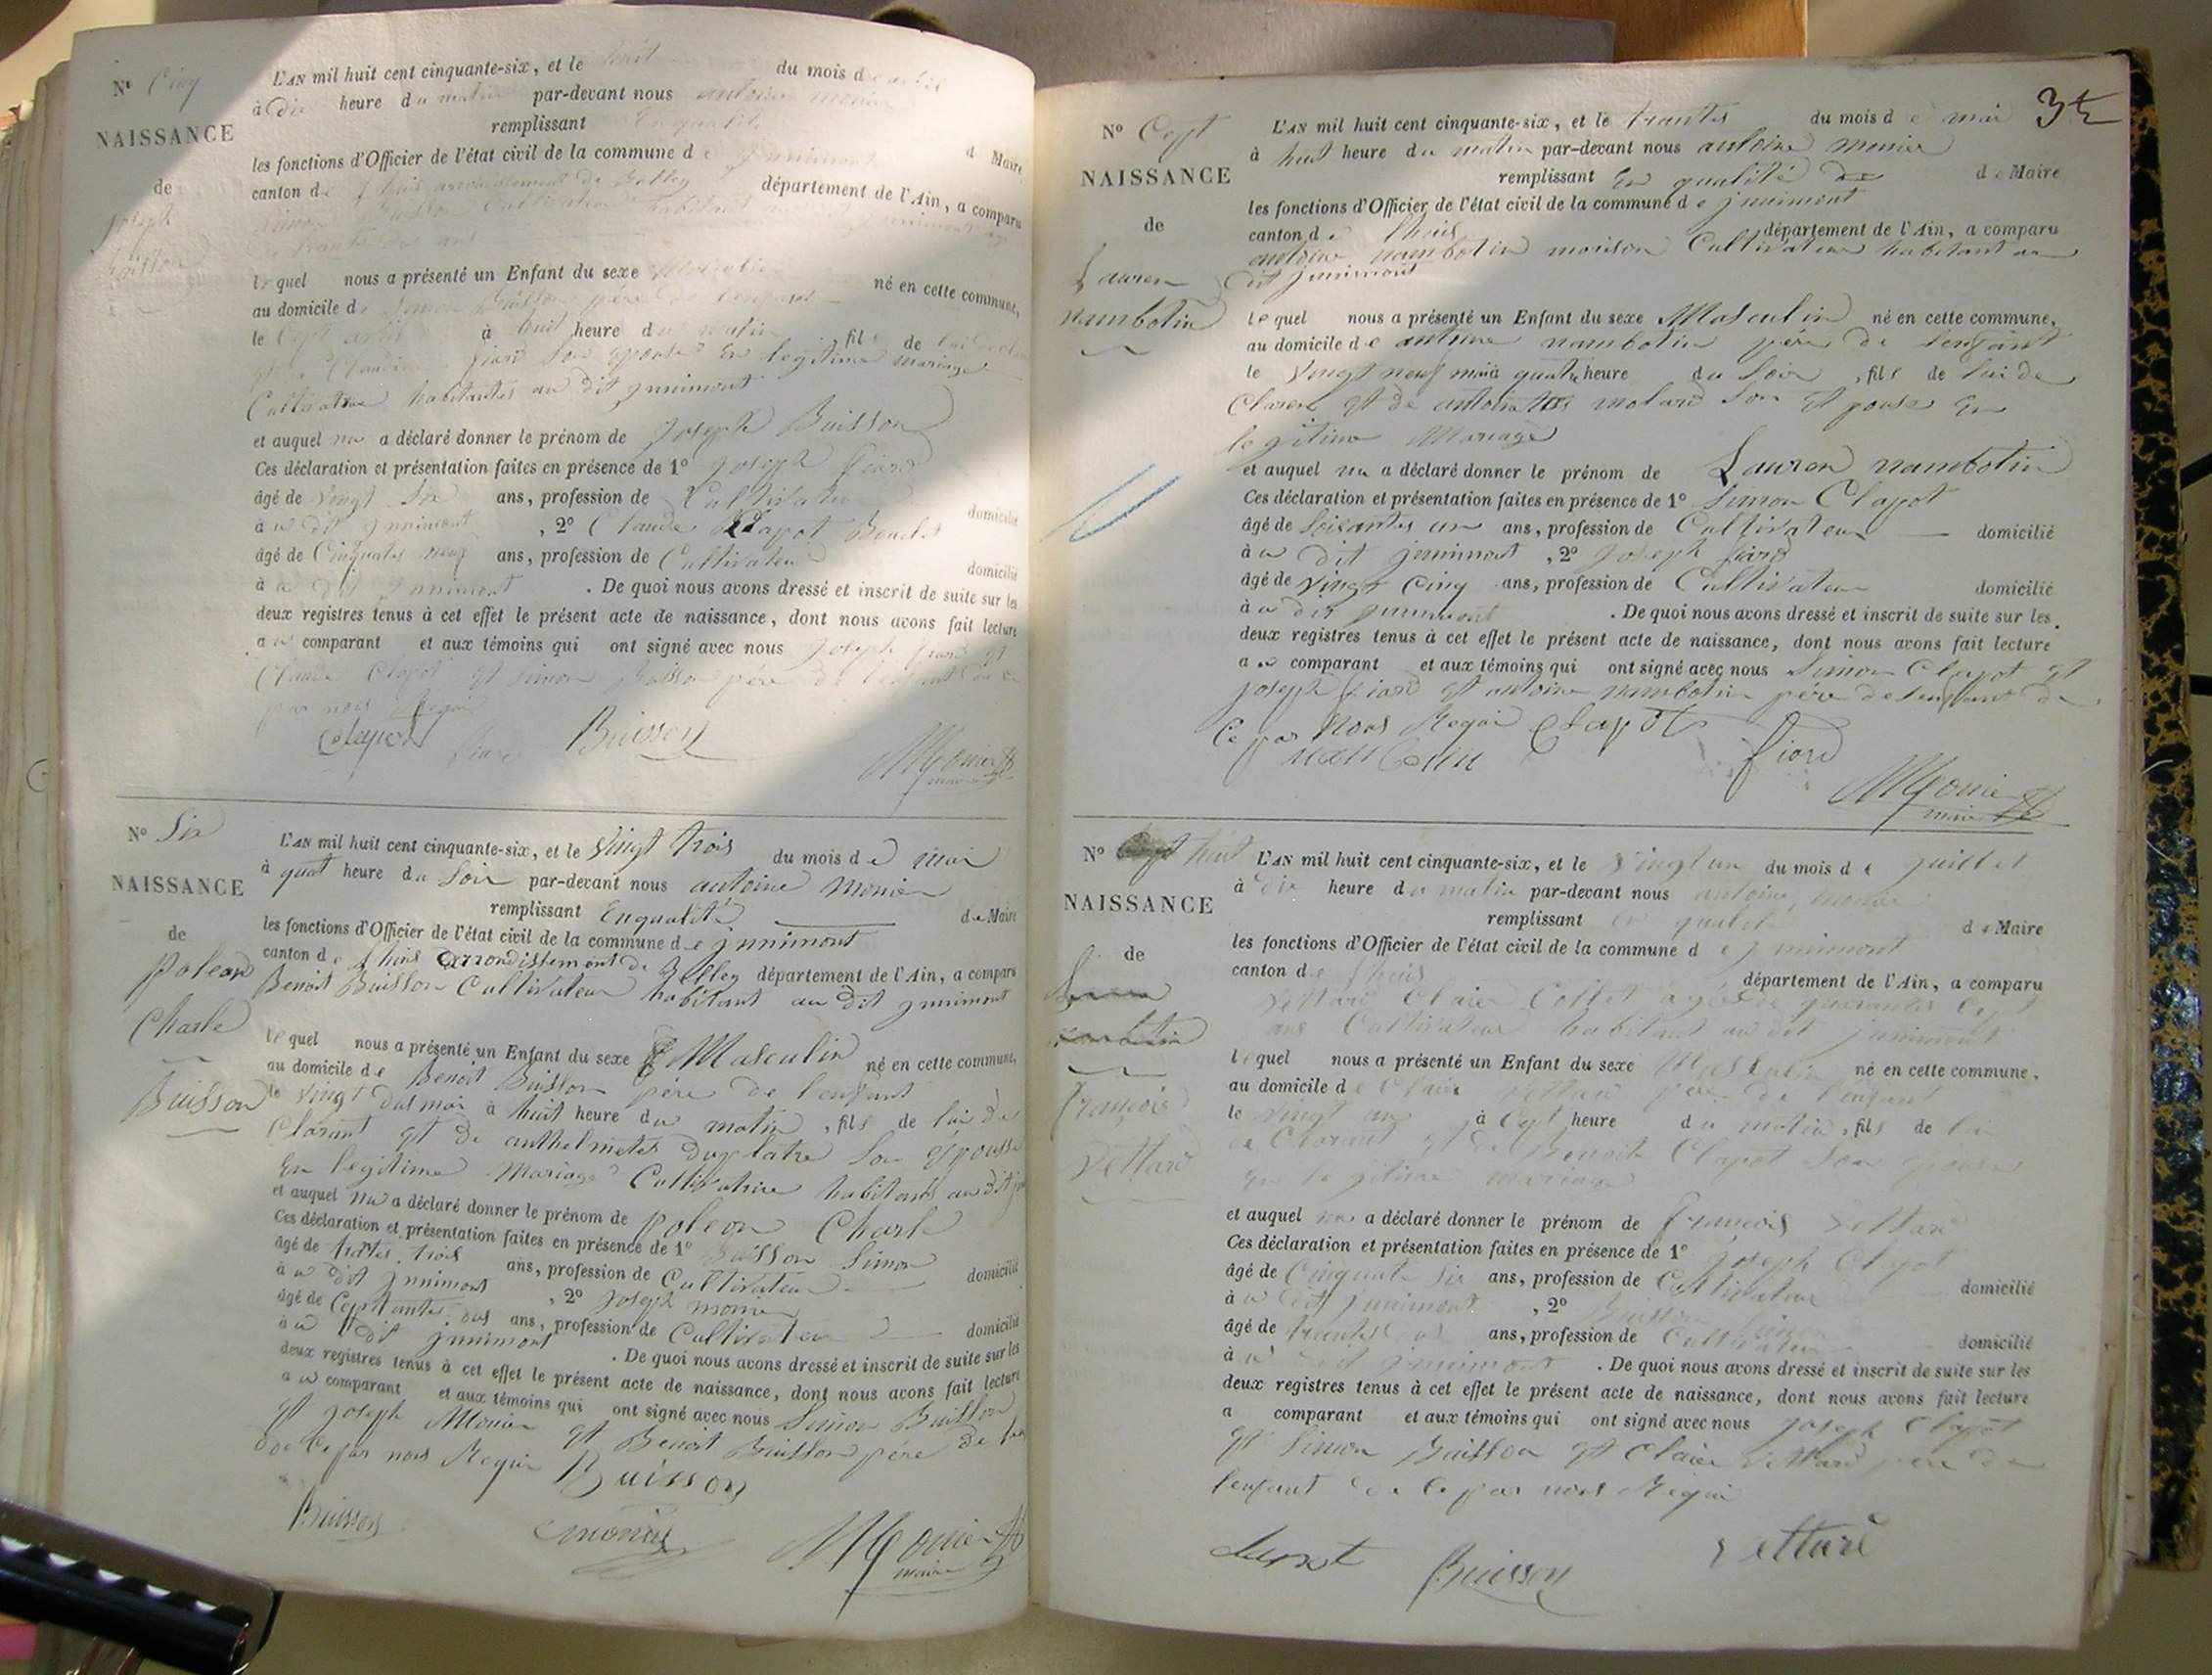 N° Cinq
NAISSANCE
de
joseph
buisson
L'AN mil huit cent cinquante-six, et le huit du mois d
à dix heure du matin par-devant nous antoine monier
remplissant En qualité
d Maire
les fonctions d'Officier de l'état civil de la commune de jnnimont
canton de lhuis arrondissement de Belley département de l'Ain, a comparu
simon Buisson Cultivateur habitant jnnimont
le quel nous a présenté un Enfant du sexe Masculin né en cette commune,
au domicile de Simon Buisson père de l'enfant
le Cept avril à huit heure du matin fils de lui
fiard son epouse En legitime mariage
Cultivatrice habitantes au dit jnnimont
et auquel na a déclaré donner le prénom de joseph Buisson
Ces déclaration et présentation faites en présence de 1° joseph fiard
âgé de vingt six ans, profession de Cultivateur domicilié
à u dit jnnimont, 2° Claude Clapot Benoit
âgé de Cinquates neuf ans, profession de Cultivateur domicilié
à u dit jnnimont. De quoi nous avons dressé et inscrit de suite sur les
deux registres tenus à cet effet le présent acte de naissance, dont nous avons fait lecture
a u comparant et aux témoins qui ont signé avec nous joseph fiard et
Claude Clapot et simon Buisson père de l'enfant de ce
par nous Requi
Clapot fiard Buisson
Monier
maire
N° Six
NAISSANCE
de
poleon
Charle
Buisson
L'AN mil huit cent cinquante-six, et le vingt trois du mois de mai
à quat heure du Soir par-devant nous antoine monier
remplissant Enqualité de Maire
les fonctions d'Officier de l'état civil de la commune de jnnimont
canton de lhuis arrondissement de Belley département de l'Ain, a comparu
Benoit Buisson Cultivateur habitant au dit jnnimont
le quel nous a présenté un Enfant du sexe Masculin né en cette commune,
au domicile de Benoit Buisson père de l'enfant
le vingt dus mai à huit heure du matin, fils de lui de
Clarant et de anthelmetes duplatre Son Epousse
En legitime Mariage Cultivatrice habitants au dit
et auquel na a déclaré donner le prénom de poleon Charle
Ces déclaration et présentation faites en présence de 1° Buisson Simon
âgé de trantes trois ans, profession de Cultivateur domicilié
à u dit jnnimont, 2° joseph monier
âgé de Ceptantes dus ans, profession de Cultivateur domicilié
à u dit jnnimont. De quoi nous avons dressé et inscrit de suite sur les
deux registres tenus à cet effet le présent acte de naissance, dont nous avons fait lecture
a u comparant et aux témoins qui ont signé avec nous Simon Buisson
et joseph Monier et Benoit Buisson père de
de ce par nous Requi Buisson
Buisson monier Monier
maire
35
N° Cept
NAISSANCE
de
Lauren
nambotin
L'AN mil huit cent cinquante-six, et le trantes du mois de mai
à huit heure du matin par-devant nous antoine monier
remplissant En qualité de de Maire
les fonctions d'Officier de l'état civil de la commune de jnnimont
canton de lhuis département de l'Ain, a comparu
antoine nambotin morison Cultivateur habitant au
dit jnnimont
le quel nous a présenté un Enfant du sexe Masculin né en cette commune,
au domicile de antoine nambotin père de lenfant
le vingt neuf mai à quatre heure du Soir, fils de lui de
Claren et de antoinettes molard Son Et pouse En
legitime Mariage
et auquel na a déclaré donner le prénom de Lauren nambotin
Ces déclaration et présentation faites en présence de 1° Simon Clapot
âgé de Soisantes un ans, profession de Cultivateur domicilié
à u dit jnnimont, 2° joseph fiard
âgé de vingt Cinq ans, profession de Cultivateur domicilié
à u dit jnnimont. De quoi nous avons dressé et inscrit de suite sur les
deux registres tenus à cet effet le présent acte de naissance, dont nous avons fait lecture
a u comparant et aux témoins qui ont signé avec nous Simon Clapot et
joseph fiard et antoine nambotin père de lenfant de
Ce par Nous Requi Clapot fiord
Monier
maire
N° huit
NAISSANCE
de
françois
vettard
L'AN mil huit cent cinquante-six, et le vingt un du mois de juillet
à dix heure du matin par-devant nous antoine monier
remplissant en qualité de Maire
les fonctions d'Officier de l'état civil de la commune de jnnimont
canton de lhuis département de l'Ain, a comparu
vettard Claire Collet agé de quarantes Cept
ans Cultivateur habitant au dit jnnimont
le quel nous a présenté un Enfant du sexe Masculin né en cette commune,
au domicile de Claire vettard père de l'enfant
le vingt un à Cept heure du matin, fils de lui
de Clarant et de Benoite Clapot Son epouse
en legitime mariage
et auquel na a déclaré donner le prénom de françois vettard
Ces déclaration et présentation faites en présence de 1° joseph Clapot
âgé de Cinquate six ans, profession de Cultivateur domicilié
à u dit jnnimont, 2° Buisson Simon
âgé de trantes ans, profession de Cultivateur domicilié
à u dit jnnimont. De quoi nous avons dressé et inscrit de suite sur les
deux registres tenus à cet effet le présent acte de naissance, dont nous avons fait lecture
a comparant et aux témoins qui ont signé avec nous joseph Clapot
et Simon Buisson et Claire vettard père de
lenfant de Ce par nous Requi
Clapot Buisson vettard